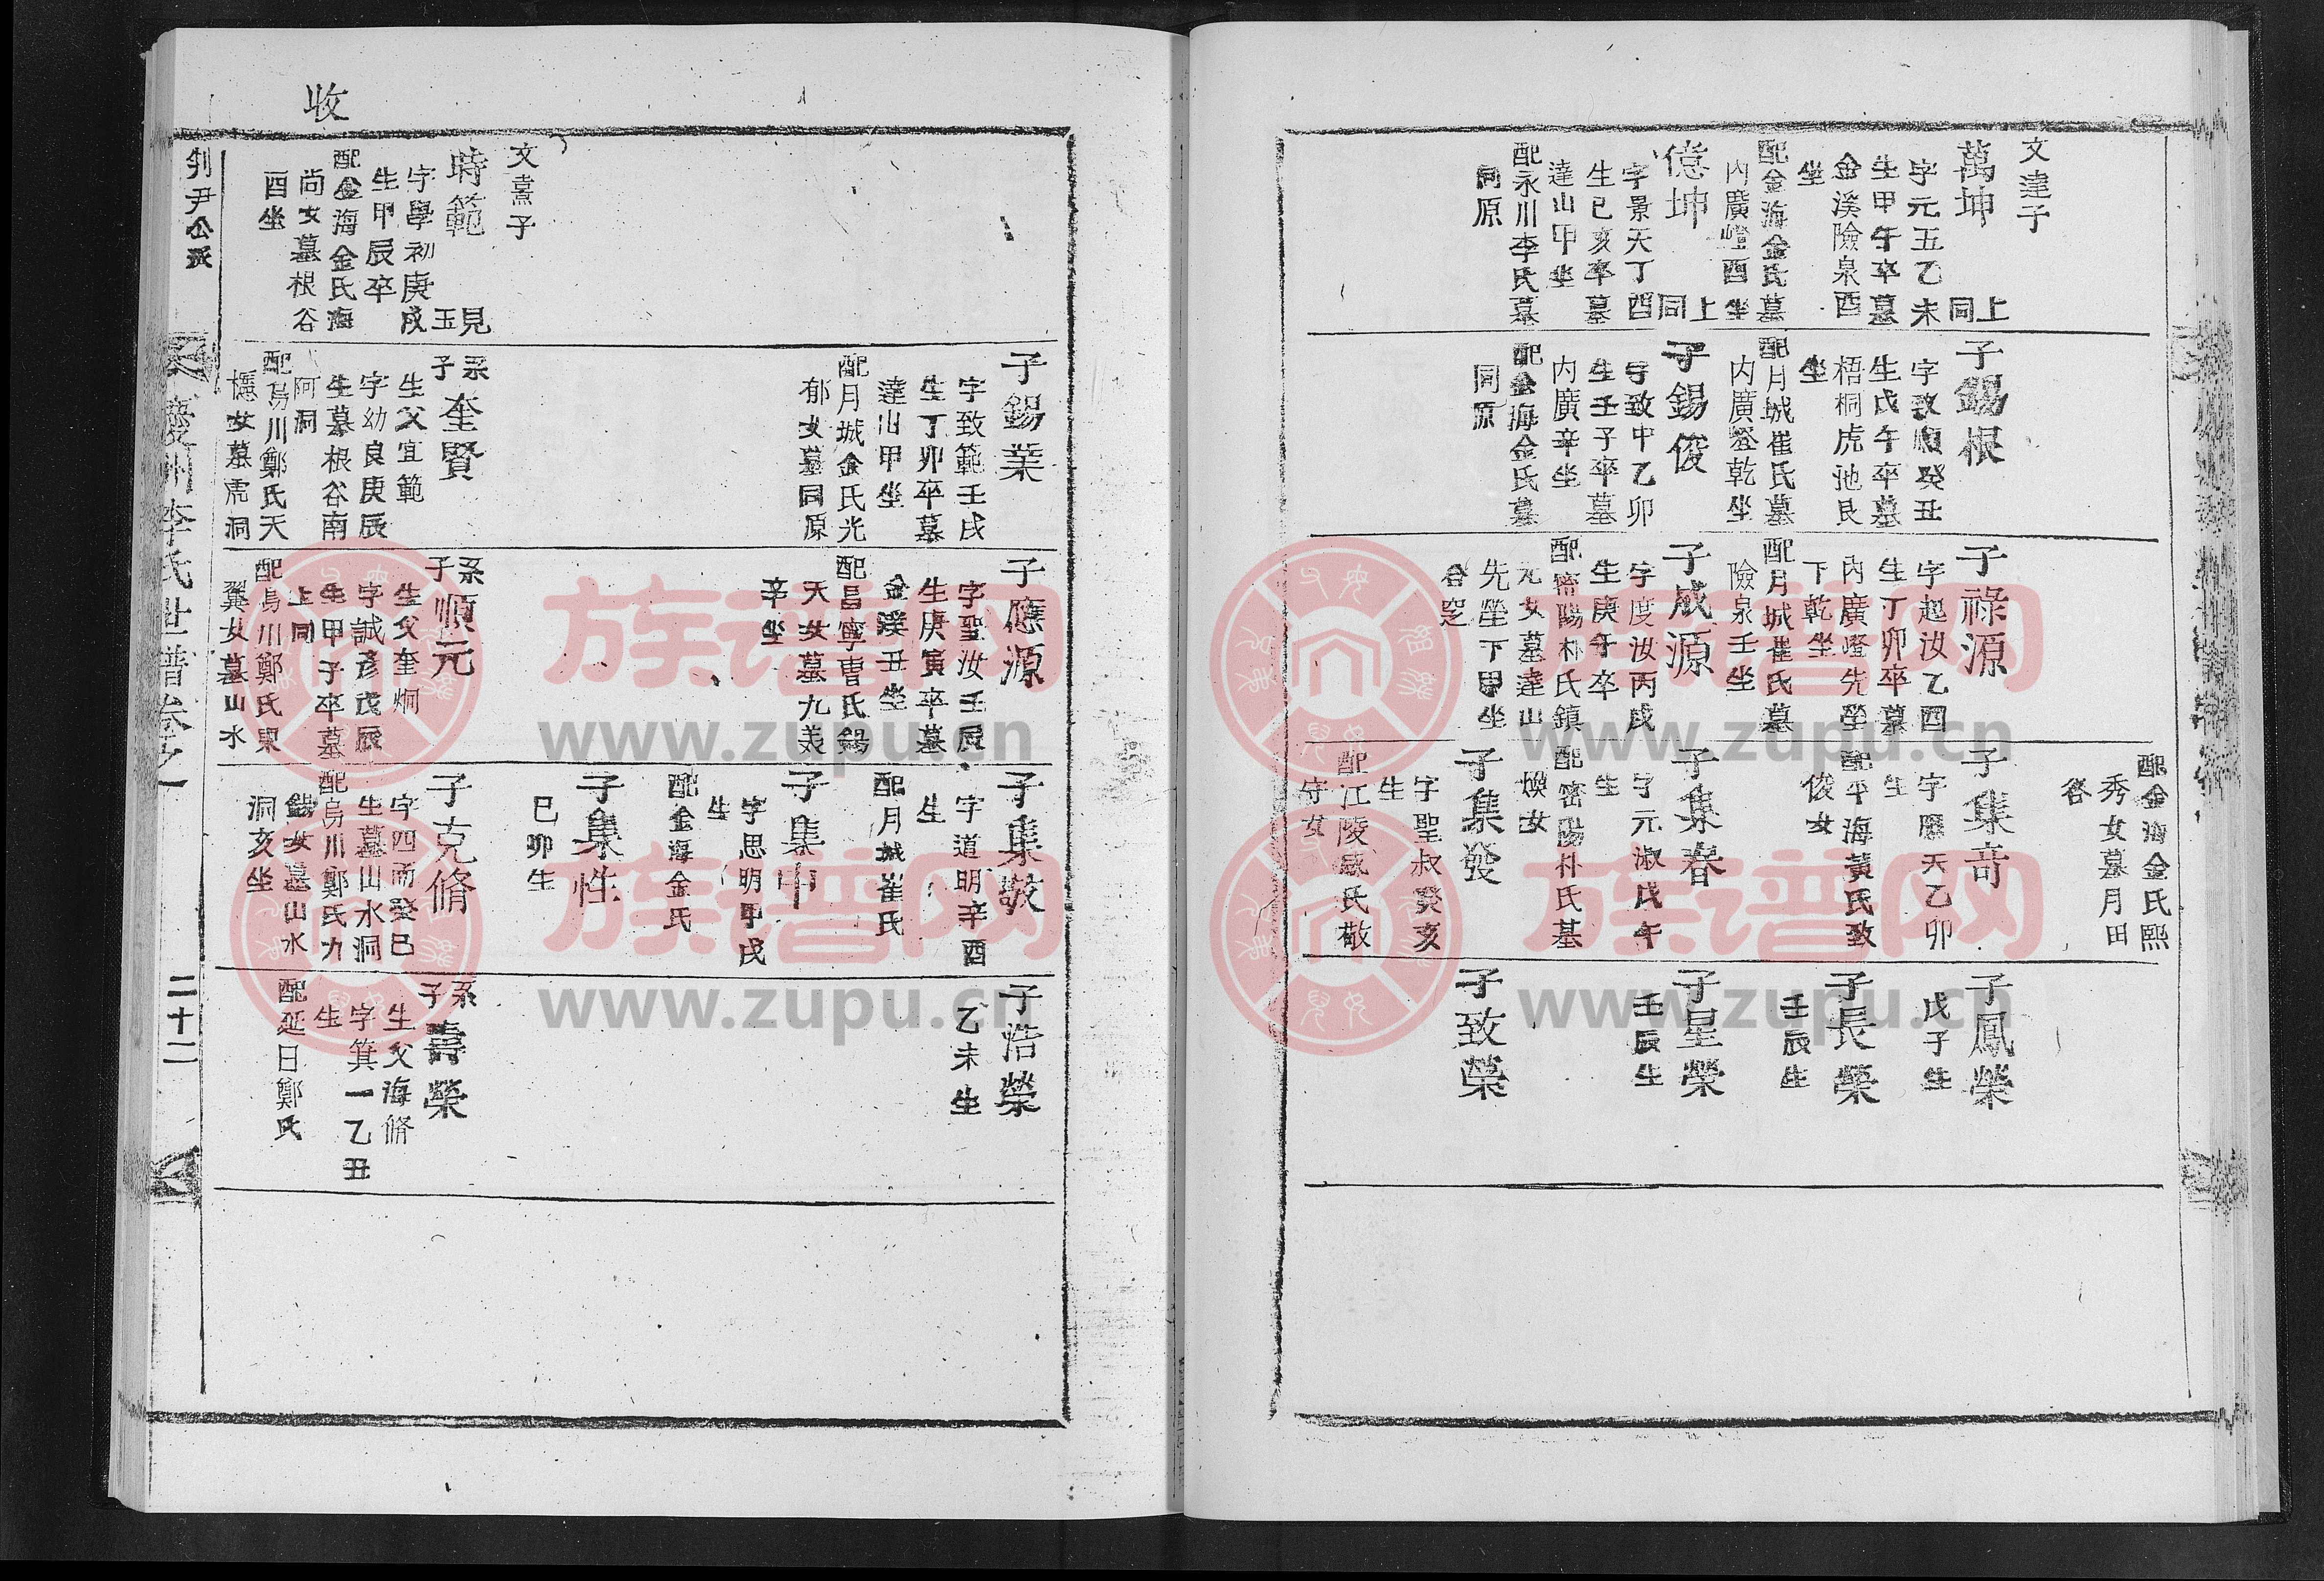 文達子
萬坤
上同
字元五乙未
生甲午卒墓
金溪險泉酉
坐
配金海金氏墓
內廣嶝酉坐
億坤
上同
字景天丁酉
生已亥卒墓
達山甲坐
配永川李氏墓
同原
子錫根
字致順癸丑
生戊午卒墓
梧桐虎池艮
坐
配月城崔氏墓
內廣嶝乾坐
子錫俊
字致中乙卯
生壬子卒墓
內廣辛坐
配金海金氏墓
同原
子祿源
字起汝乙酉
生丁卯卒墓
內廣嶝先塋
下乾坐
配月城崔氏墓
險泉壬坐
子成源
字度汝丙戌
生庚午卒
配密陽朴氏鎮
元女墓達山
先塋下甲坐
合窆
配金海金氏熙
秀女墓月田
谷
子集奇
字應天乙卯
生
配平海黃氏致
俊女
子集春
字元淑戊午
生
配密陽朴氏基
煥女
子集發
字聖叔癸亥
生
配江陵咸氏敬
守女
子鳳榮
戊子生
子長榮
壬辰生
子星榮
壬辰生
子致榮
子錫業
字致範壬戌
生丁卯卒墓
達山甲坐
配月城金氏光
郁女墓同原
子應源
字聖汝壬辰
生庚寅卒墓
金溪丑坐
配昌寧曹氏錫
天女墓九美
辛坐
子集敬
字道明辛酉
生
配月城崔氏
子集中
字思明甲戌
生
配金海金氏
子集性
已卯生
子浩榮
乙未生
收
文熹子
時範
見玉
字學初庚戌
生甲辰卒
配金海金氏海
尚女墓根谷
酉坐
系子奎賢
生父宜範
字幼良庚辰
生墓根谷南
阿洞
配烏川鄭氏天
檍女墓虎洞
系子順元
生父奎炯
字誠彥戊辰
生甲子卒墓
上同
配烏川鄭氏東
翼女墓山水
子克脩
字四而癸巳
生墓山水洞
配烏川鄭氏九
錫女墓山水
洞亥坐
系子壽榮
生父海脩
字箕一乙丑
生
配延日鄭氏
判尹公派
慶州李氏世譜卷之
二十二
族谱网
www.zupu.cn
族谱网
www.zupu.cn
族谱网
www.zupu.cn
族谱网
www.zupu.cn